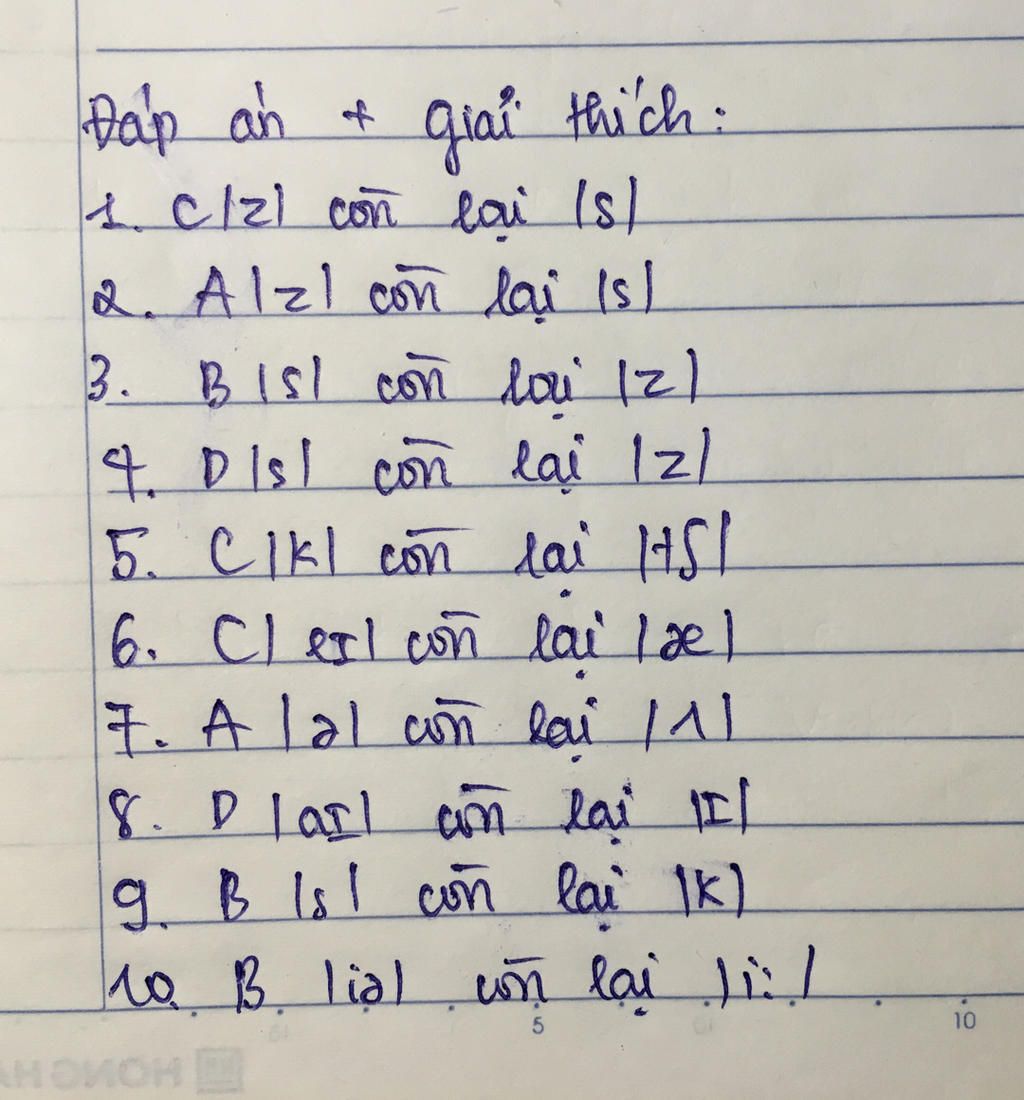 Đáp án + giải thích:
1. C |z| còn lại |s|
2. A |z| còn lại |s|
3. B |s| còn lại |z|
4. D |s| còn lại |z|
5. C |k| còn lại |tʃ|
6. C | eɪ| còn lại |æ|
7. A |ə| còn lại |ʌ|
8. D |aɪ| còn lại |ɪ|
9. B |s| còn lại |k|
10. B |iə| còn lại |i:|
5 10